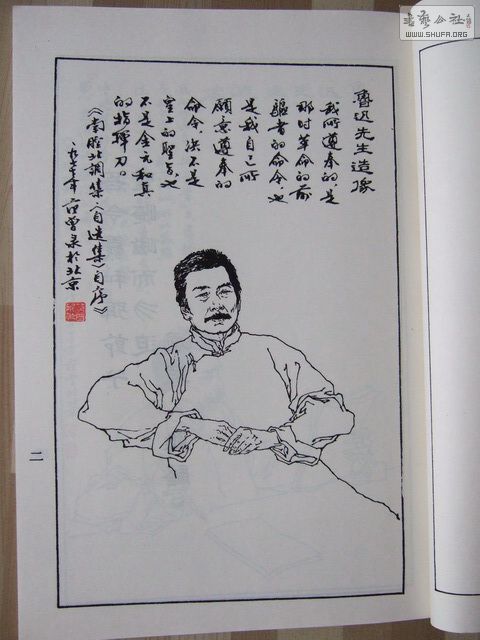 魯迅先生造像
我所遵奉的,是
那时革命的前
驱者的命令,也
是我自己所
愿意遵奉的
命令,决不是
皇上的圣旨,也
不是金元和真
的指挥刀。
《南腔北调集〈自选集〉自序》
一九七七年 范曾录于北京
二
書藝公社
WWW.SHUFA.ORG